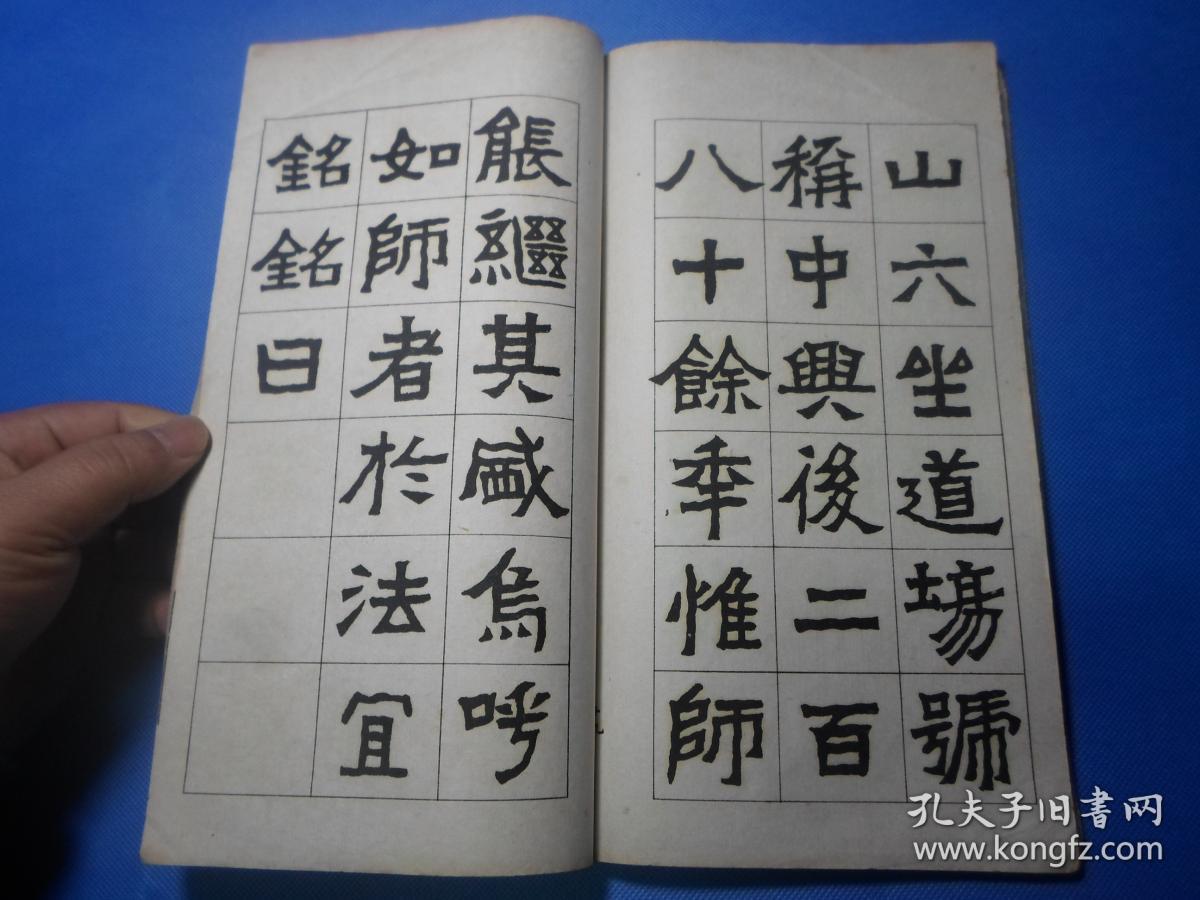 山六坐道場號
稱中興後二百
八十餘年惟師
能繼其盛烏呼
如師者於法宜
銘銘曰
孔夫子旧書网
www.kongfz.com